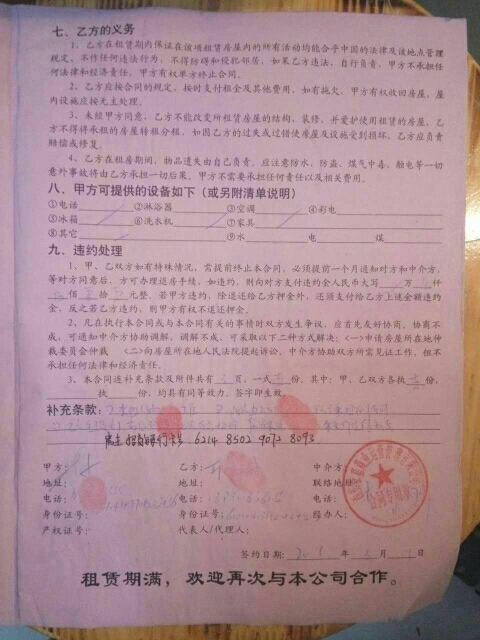 七、乙方的义务
1、乙方在租赁期内保证在该项租赁房屋内的所有活动均能合乎中国的法律及该地点管理
规定，不作任何违法行为，不得防碍和侵犯邻居，如果乙方违法，自行负责，甲方不承担任
何法律和经济责任，甲方有权单方终止合同。
2、乙方应按合同的规定，按时支付租金及其他费用，如有拖欠，甲方有权收回房屋，屋
内设施应按无主处理。
3、未经甲方同意，乙方不能改变所租赁房屋的结构、装修，并爱护使用租赁的房屋，乙
方不得将承租的房屋转租分租，如因乙方的过失或过错使房屋及设施受到损坏，乙方应负责
赔偿或修复。
4、乙方在租房期间，物品遗失由自己负责，应注意防水、防盗、煤气中毒、触电等一切
意外事故将由乙方承担一切后果。甲方不需要承担任何责任以及相关费用。
八、甲方可提供的设备如下（或另附清单说明）
①电话 ②淋浴器 ③空调 ④彩电
⑤冰箱 ⑥洗衣机 ⑦家具
⑧其它 ⑨水 电 煤
九、违约处理
1、甲、乙双方如有特殊情况，需提前终止本合同，必须提前一个月通知对方和中介方，
等对方同意后，方可办理退房手续，如违约，则向对方支付违约金人民币大写 万 仟
佰 拾 元整，若甲方违约，除退还给乙方押金外，还须支付给乙方上述金额违约
金，反之若乙方违约，则甲方有权不退还押金。
2、凡在执行本合同或与本合同有关的事情时双方发生争议，应首先友好协商，协商不
成，可通知中介方协助调解，调解不成，可采取以下二种方式解决：(一)申请房屋所在地仲
裁委员会仲裁 （二)向房屋所在地人民法院提起诉讼，中介方协助双方所需见证工作，但不
承担任何法律和经济责任。
3、本合同连补充条款及附件共有 页，一式 份，其中：甲、乙双方各执 份，
执 份，均具有同等效力，签字即生效。
补充条款：
招商银行卡号 6214 8502 9072 8093
甲方： 乙方： 中介方：
地址： 地址： 联络地址：
电话： 电话： 电话：
身份证号： 身份证号： 经办人：
产权证号： 代表人/代理人：
签约日期： 年 月 日
租赁期满，欢迎再次与本公司合作。